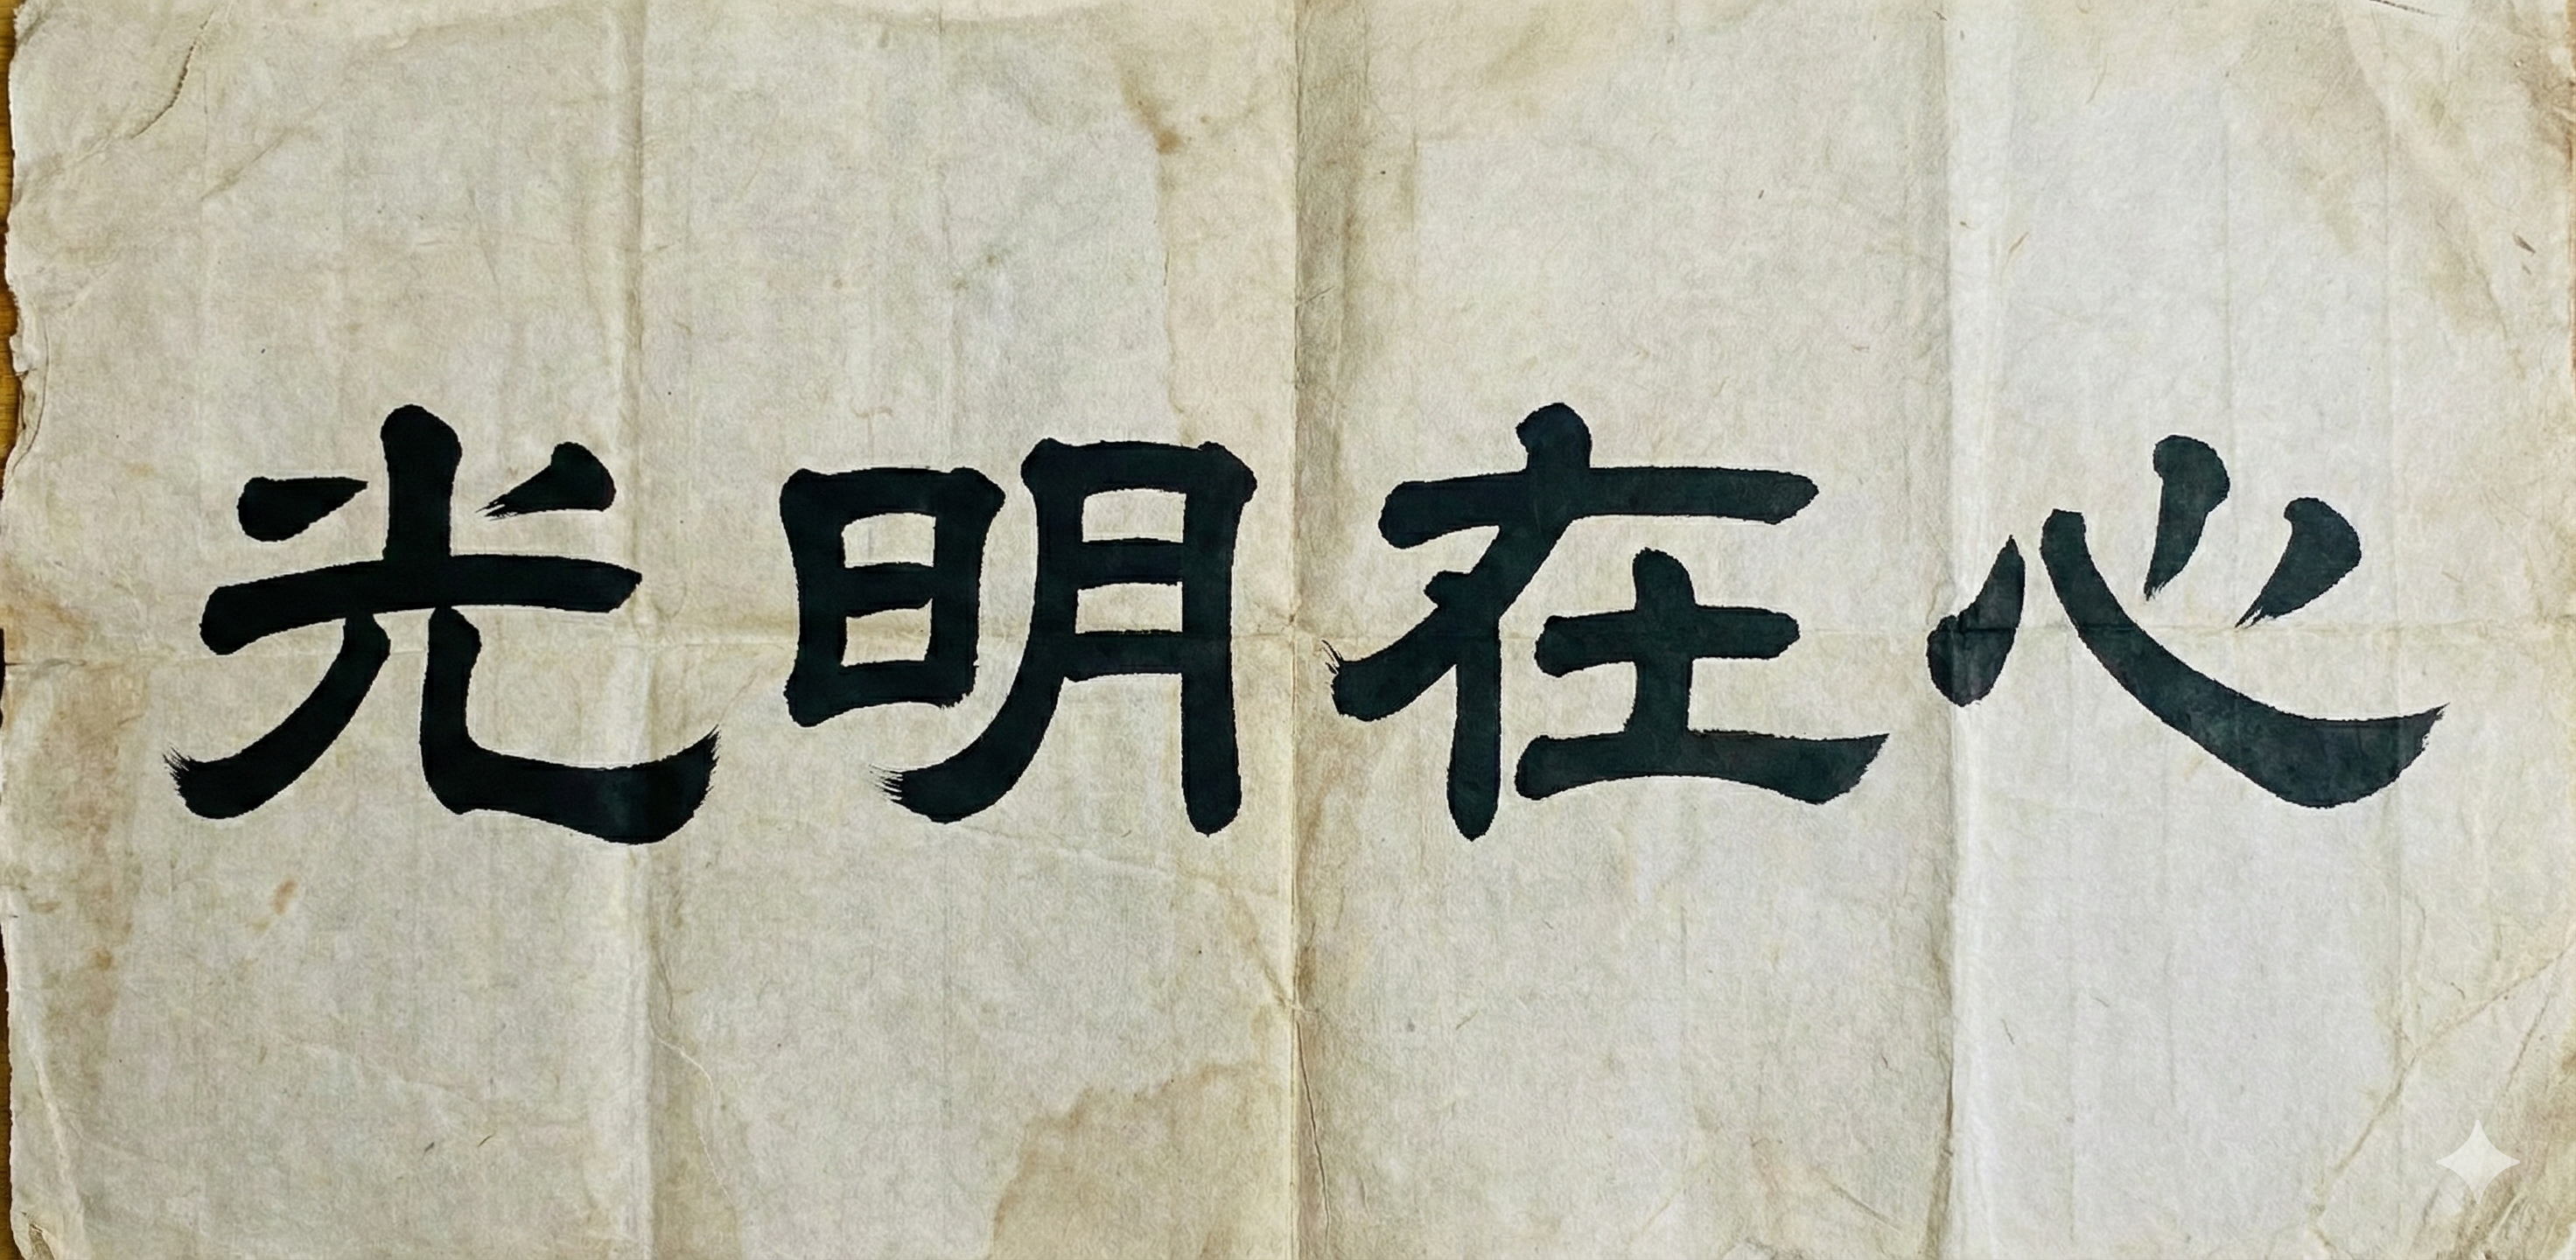 光明在心